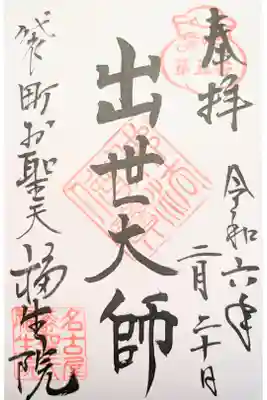 奉拝
令和六年
二月二十日
出世大師
袋町お聖天
福生院
名古屋